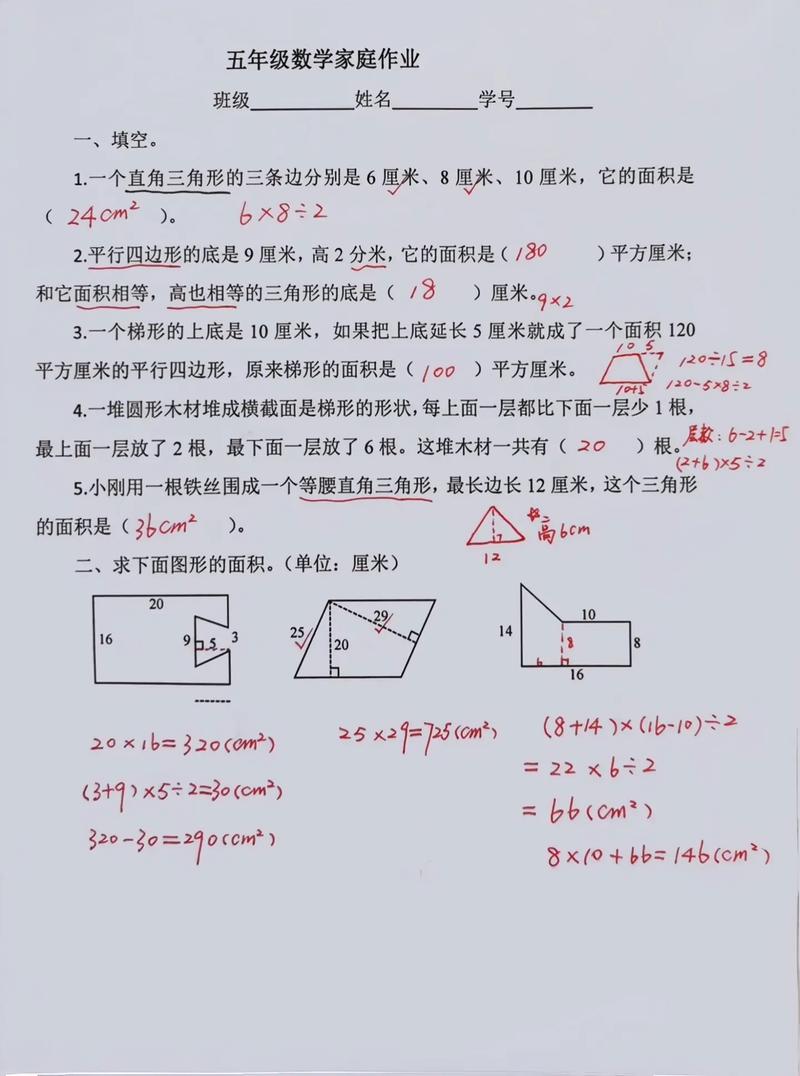 五年级数学家庭作业
班级__________姓名________学号_______
一、填空。
1.一个直角三角形的三条边分别是 6 厘米、8 厘米、10 厘米，它的面积是
（ 24cm² ）。 6×8÷2
2.平行四边形的底是 9 厘米，高 2 分米，它的面积是（ 180 ）平方厘米；
和它面积相等，高也相等的三角形的底是（ 18 ）厘米。9×2
3.一个梯形的上底是 10 厘米，如果把上底延长 5 厘米就成了一个面积 120
10 5
平方厘米的平行四边形，原来梯形的面积是（ 100 ）平方厘米。 120÷15=8
10+5 120-5×8÷2
4.一堆圆形木材堆成横截面是梯形的形状，每上面一层都比下面一层少 1 根，
最上面一层放了 2 根，最下面一层放了 6 根。这堆木材一共有（ 20 ）根。层数：6-2+1=5
(2+6)×5÷2
5.小刚用一根铁丝围成一个等腰直角三角形，最长边长 12 厘米，这个三角形
的面积是（ 36cm² ）。 高6cm
12
二、求下面图形的面积。（单位：厘米）
20
16 9 5 3
25 29 20
14 10 8 8 6 16
20×16=320(cm²)
(3+9)×5÷2=30(cm²)
320-30=290(cm²)
25×29=725(cm²)
(8+14)×(16-10)÷2
=22×6÷2
=66(cm²)
8×10+66=146(cm²)